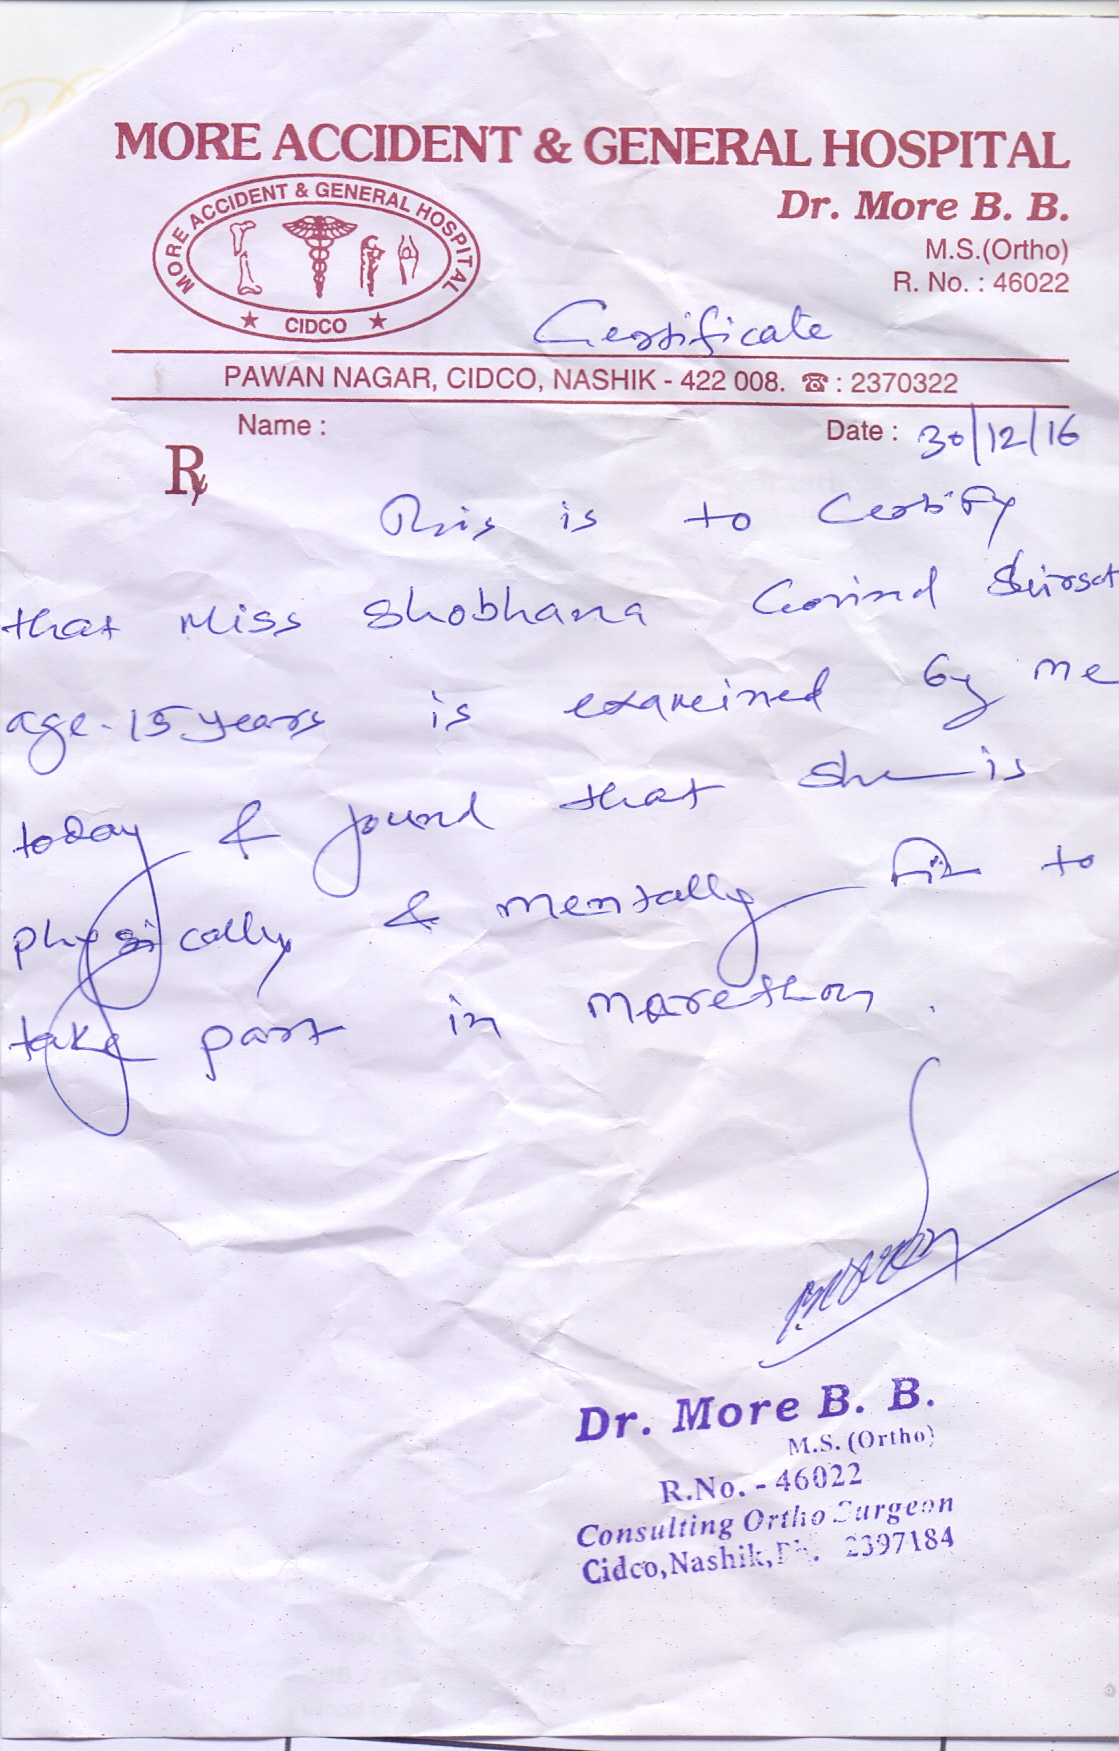 MORE ACCIDENT & GENERAL HOSPITAL
Dr. More B. B.
M.S.(Ortho)
R. No. : 46022
MORE ACCIDENT & GENERAL HOSPITAL
★ CIDCO ★
Certificate
PAWAN NAGAR, CIDCO, NASHIK - 422 008. ☎ : 2370322
Name :
Date : 30/12/16
Rx
This is to Certify
that Miss Shobhana Govind Shirsat
age-15 years is examined by me
today & found that she is
physically & mentally fit to
take part in marethon.
Dr. More B. B.
M.S. (Ortho)
R.No. - 46022
Consulting Ortho Surgeon
Cidco,Nashik,Ph. 2397184